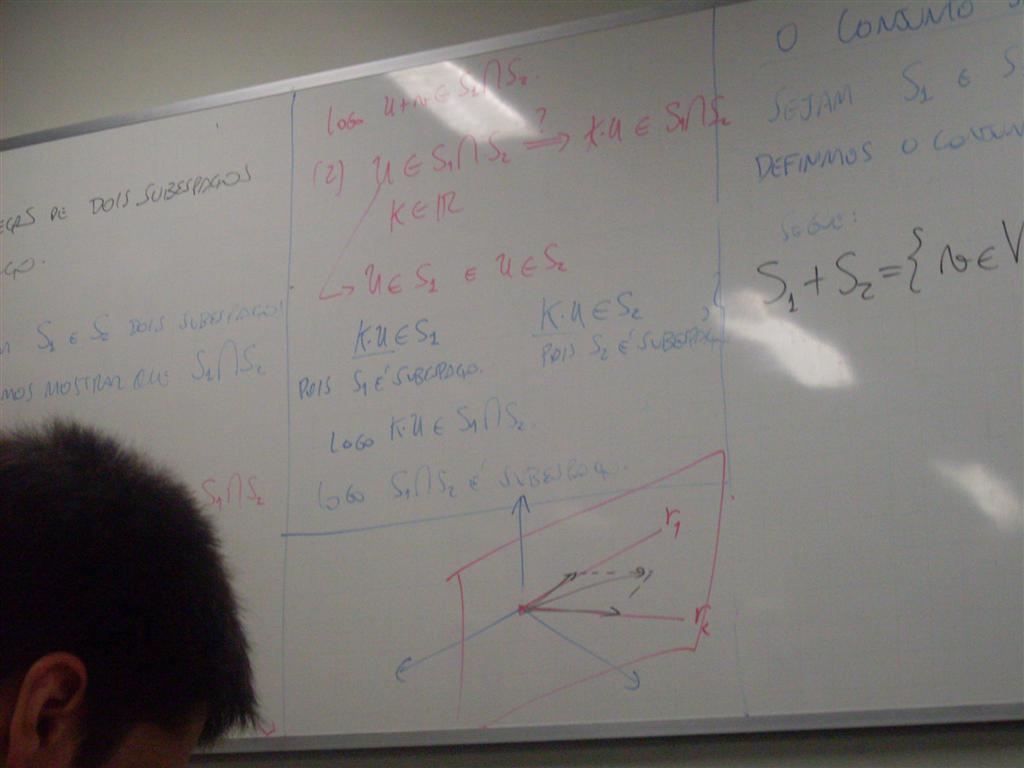 DE DOIS SUBESPAÇOS
S1 E S2 DOIS SUBESPAÇOS
MOSTRAR QUE S1∩S2
S1∩S2
LOGO u+v ∈ S1∩S2.
(2) u ∈ S1∩S2 ?⟹ K·u ∈ S1∩S2
K ∈ IR
↳ u ∈ S1 e u ∈ S2
K·u ∈ S1 K·u ∈ S2
POIS S1 É SUBESPAÇO. POIS S2 É SUBESPAÇO
LOGO K·u ∈ S1∩S2.
LOGO S1∩S2 É SUBESPAÇO.
r1
O CONJUNTO S
SEJAM S1 E S
DEFINIMOS O CONJUN
SEGUE:
S1+S2={ v ∈ V